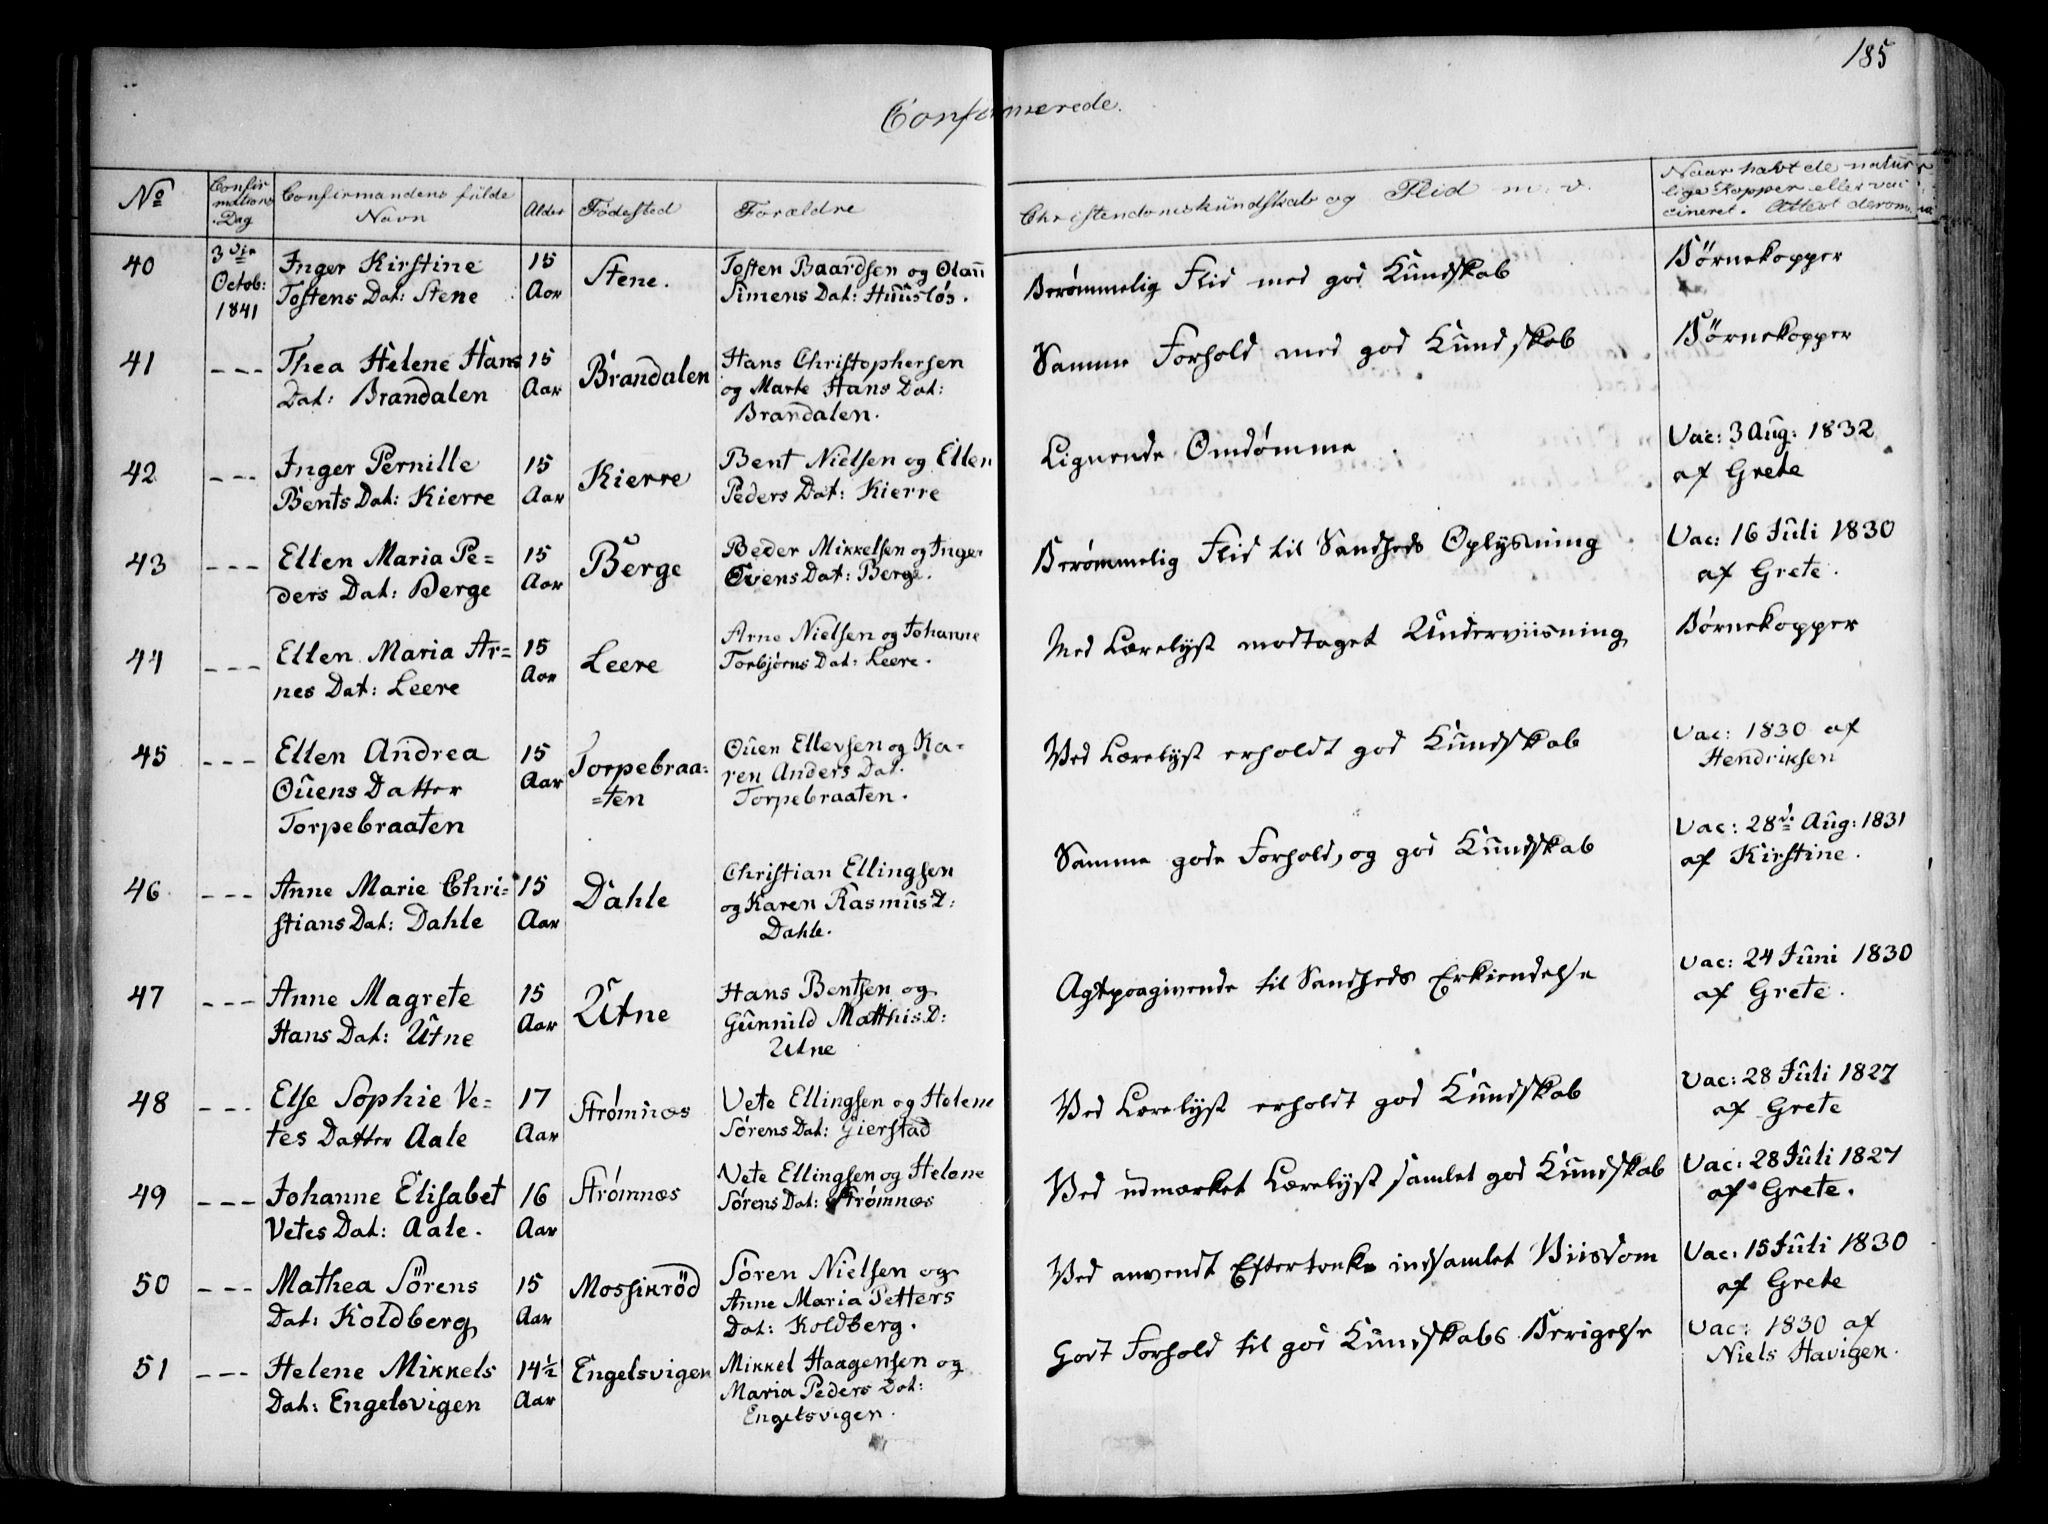 185
Confirmerede.
No
Confir
mations
Dag
Confirmandens fulde
Navn
Alder
Födested
Forældre
Christendomskundskab og Flid m. v.
Naar havt de natur
lige Kopper eller vac
cineret. Attest derom
40
3die
Octob:
1841
Inger Kirstine
Tostens Dat: Stene
15
Aar
Stene.
Tosten Baardsen og Olau
Simens Dat: Huusløs.
Berømmelig Flid med god Kundskab
Børnekopper
41
---
Thea Helene Hans
Dat: Brandalen
15
Aar
Brandalen
Hans Christophersen
og Marte Hans Dat:
Brandalen.
Samme Forhold med god Kundskab
Børnekopper
42
---
Inger Pernille
Bents Dat: Kierre
15
Aar
Kierre
Bent Nielsen og Ellen
Peders Dat: Kierre
Lignende Omdømme
Vac: 3 Aug: 1832
af Grete
43
---
Ellen Maria Pe=
ders Dat: Berge
15
Aar
Berge
Beder Mikkelsen og Inger
Ovens Dat: Berge.
Berømmelig Flid til Sandheds Oplysning
Vac: 16 Juli 1830
af Grete.
44
---
Ellen Maria Ar=
nes Dat: Leere
15
Aar
Leere
Arne Nielsen og Johanne
Torbjørns Dat: Leere.
Med Lærelyst modtaget Underviisning
Børnekopper
45
---
Ellen Andrea
Ouens Datter
Torpebraaten
15
Aar
Torpebraa=
=ten
Ouen Ellevsen og Ka=
ren Anders Dat.
Torpebraaten.
Ved Lærelyst erholdt god Kundskab
Vac: 1830 af
Hendriksen
46
---
Anne Marie Chri=
stians Dat: Dahle
15
Aar
Dahle
Christian Ellingsen
og Karen Rasmus D:
Dahle.
Samme gode Forhold, og god Kundskab
Vac: 28de Aug: 1831
af Kirstine.
47
---
Anne Magrete
Hans Dat: Utne
15
Aar
Utne
Hans Bentsen og
Gunnild Matthis D:
Utne
Agtpaagivende til Sandheds Erkiendelse
Vac: 24 Juni 1830
af Grete.
48
---
Else Sophie Ve=
tes Datter Aale
17
Aar
Strømnæs
Vete Ellingsen og Helene
Sørens Dat: Gierstad
Ved Lærelyst erholdt god Kundskab
Vac: 28 Juli 1827
af Grete
49
---
Johanne Elisabet
Vetes Dat: Aale.
16
Aar
Strømnæs
Vete Ellingsen og Helene
Sørens Dat: Strømnæs
Ved udmærket Lærelyst samlet god Kundskab
Vac: 28 Juli 1827
af Grete.
50
---
Mathea Sörens
Dat: Koldberg
15
Aar
Mossikröd
Søren Nielsen og
Anne Maria Petters
Dat: Koldberg.
Ved anvendt Eftertanke indsamlet Viisdom
Vac: 15 Juli 1830
af Grete
51
---
Helene Mikkels
Dat: Engelsvigen
14½
Aar
Engelsvigen
Mikkel Haagensen og
Maria Peders Dat:
Engelsvigen.
Godt Forhold til god Kundskabs Berigelse
Vac: 1830 af
Niels Havigen.